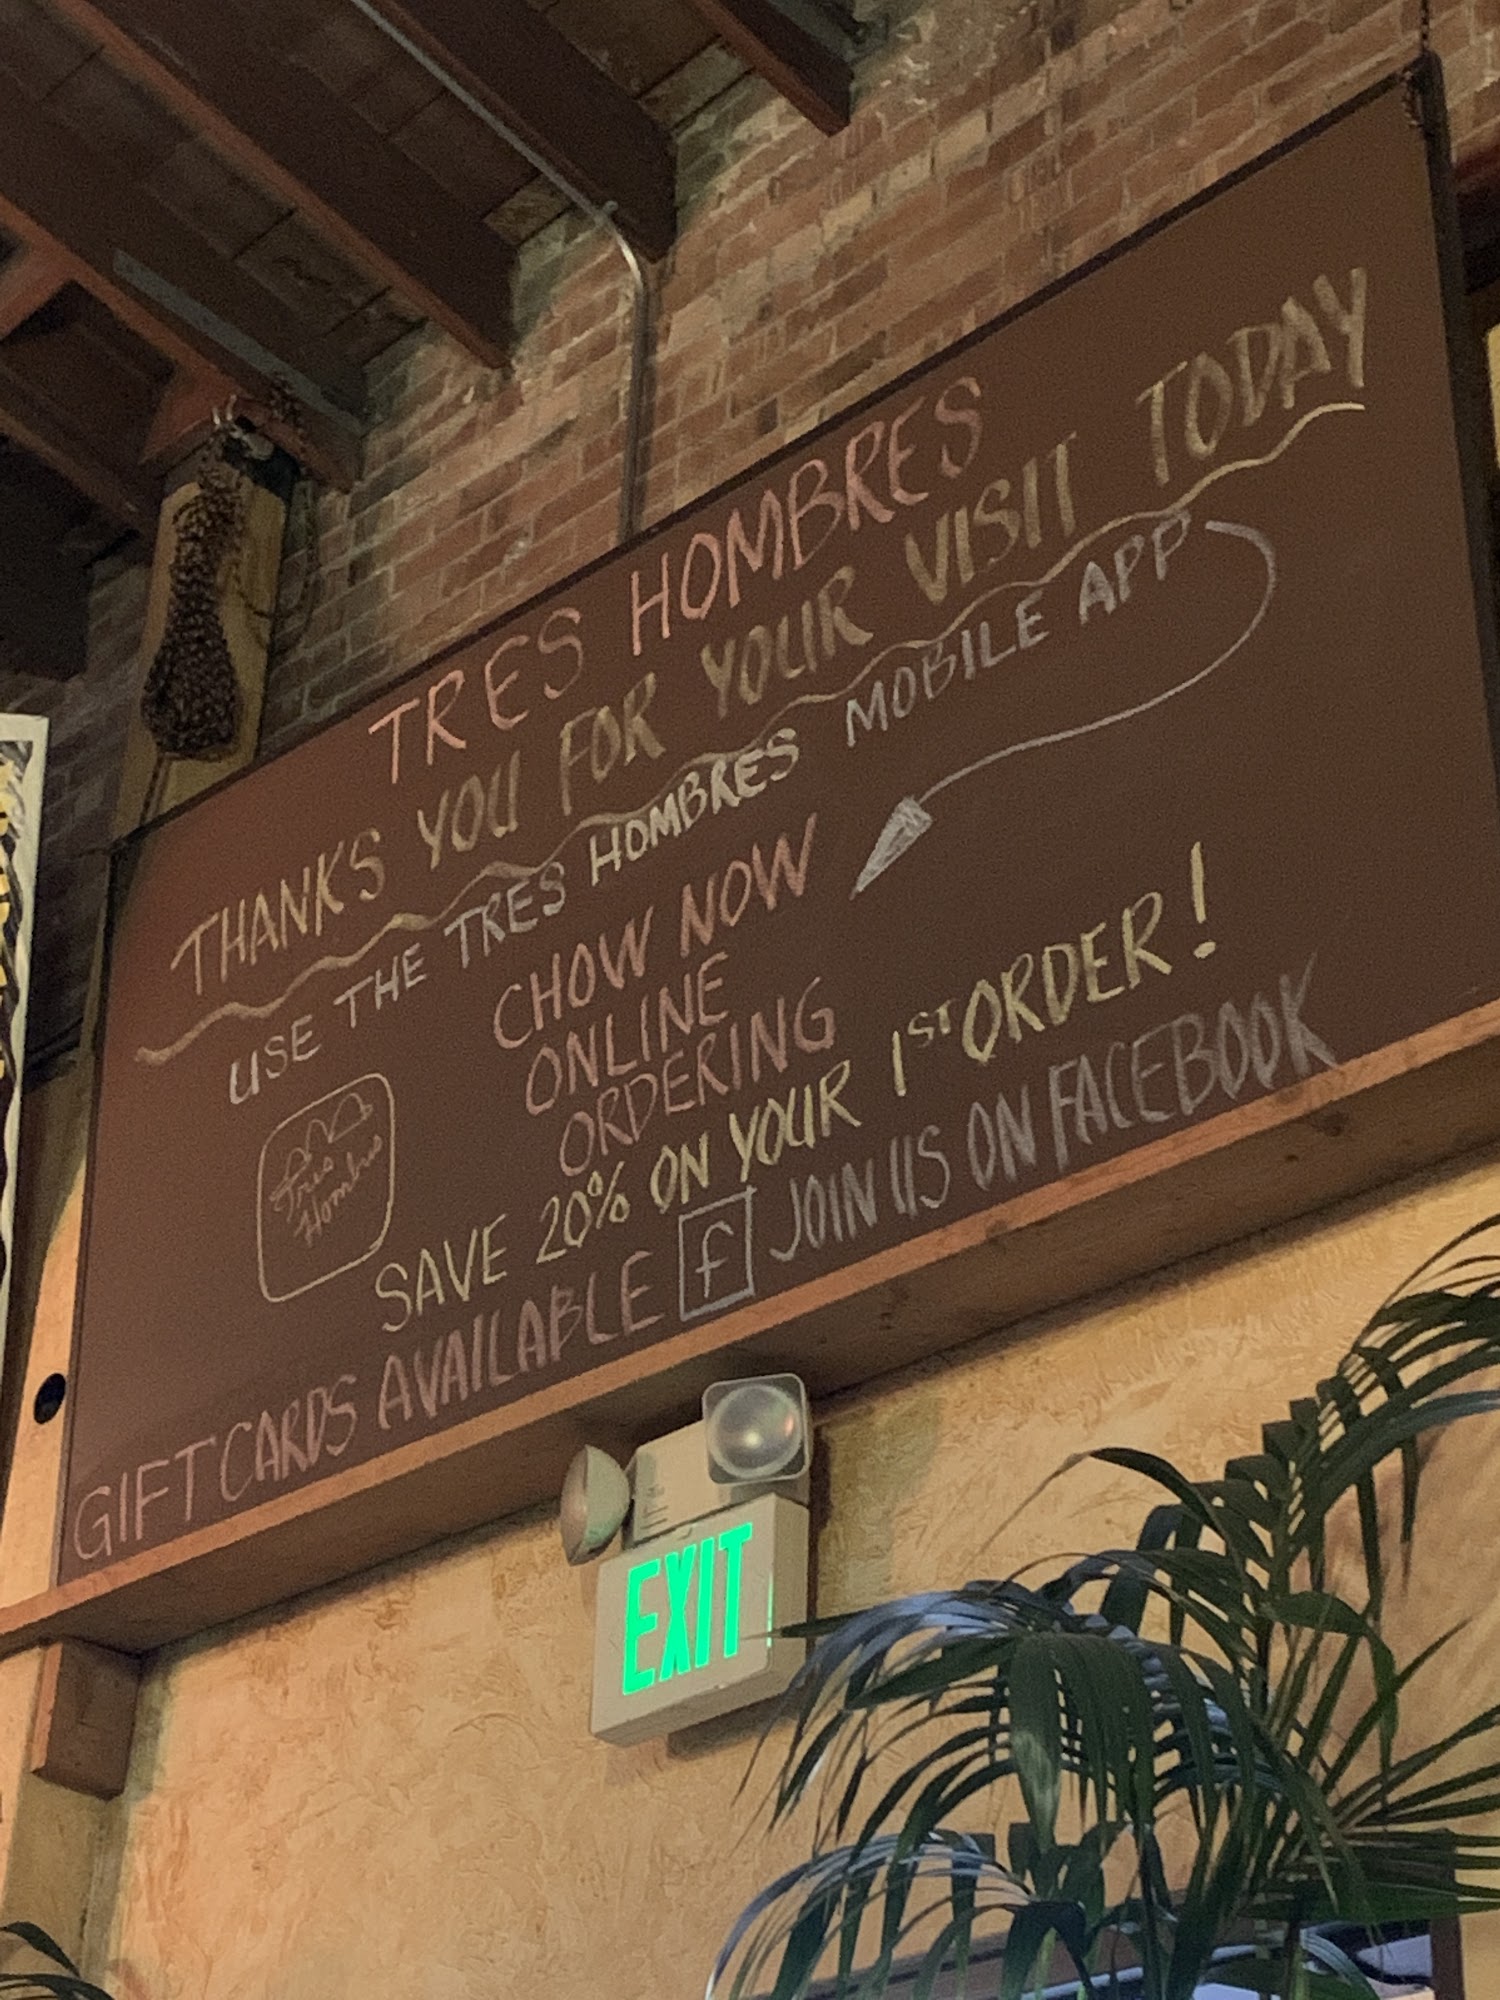 TRES HOMBRES
THANKS YOU FOR YOUR VISIT TODAY
USE THE TRES HOMBRES MOBILE APP
CHOW NOW
ONLINE
ORDERING
Tres
Hombres
SAVE 20% ON YOUR 1ST ORDER!
GIFT CARDS AVAILABLE f JOIN US ON FACEBOOK
EXIT